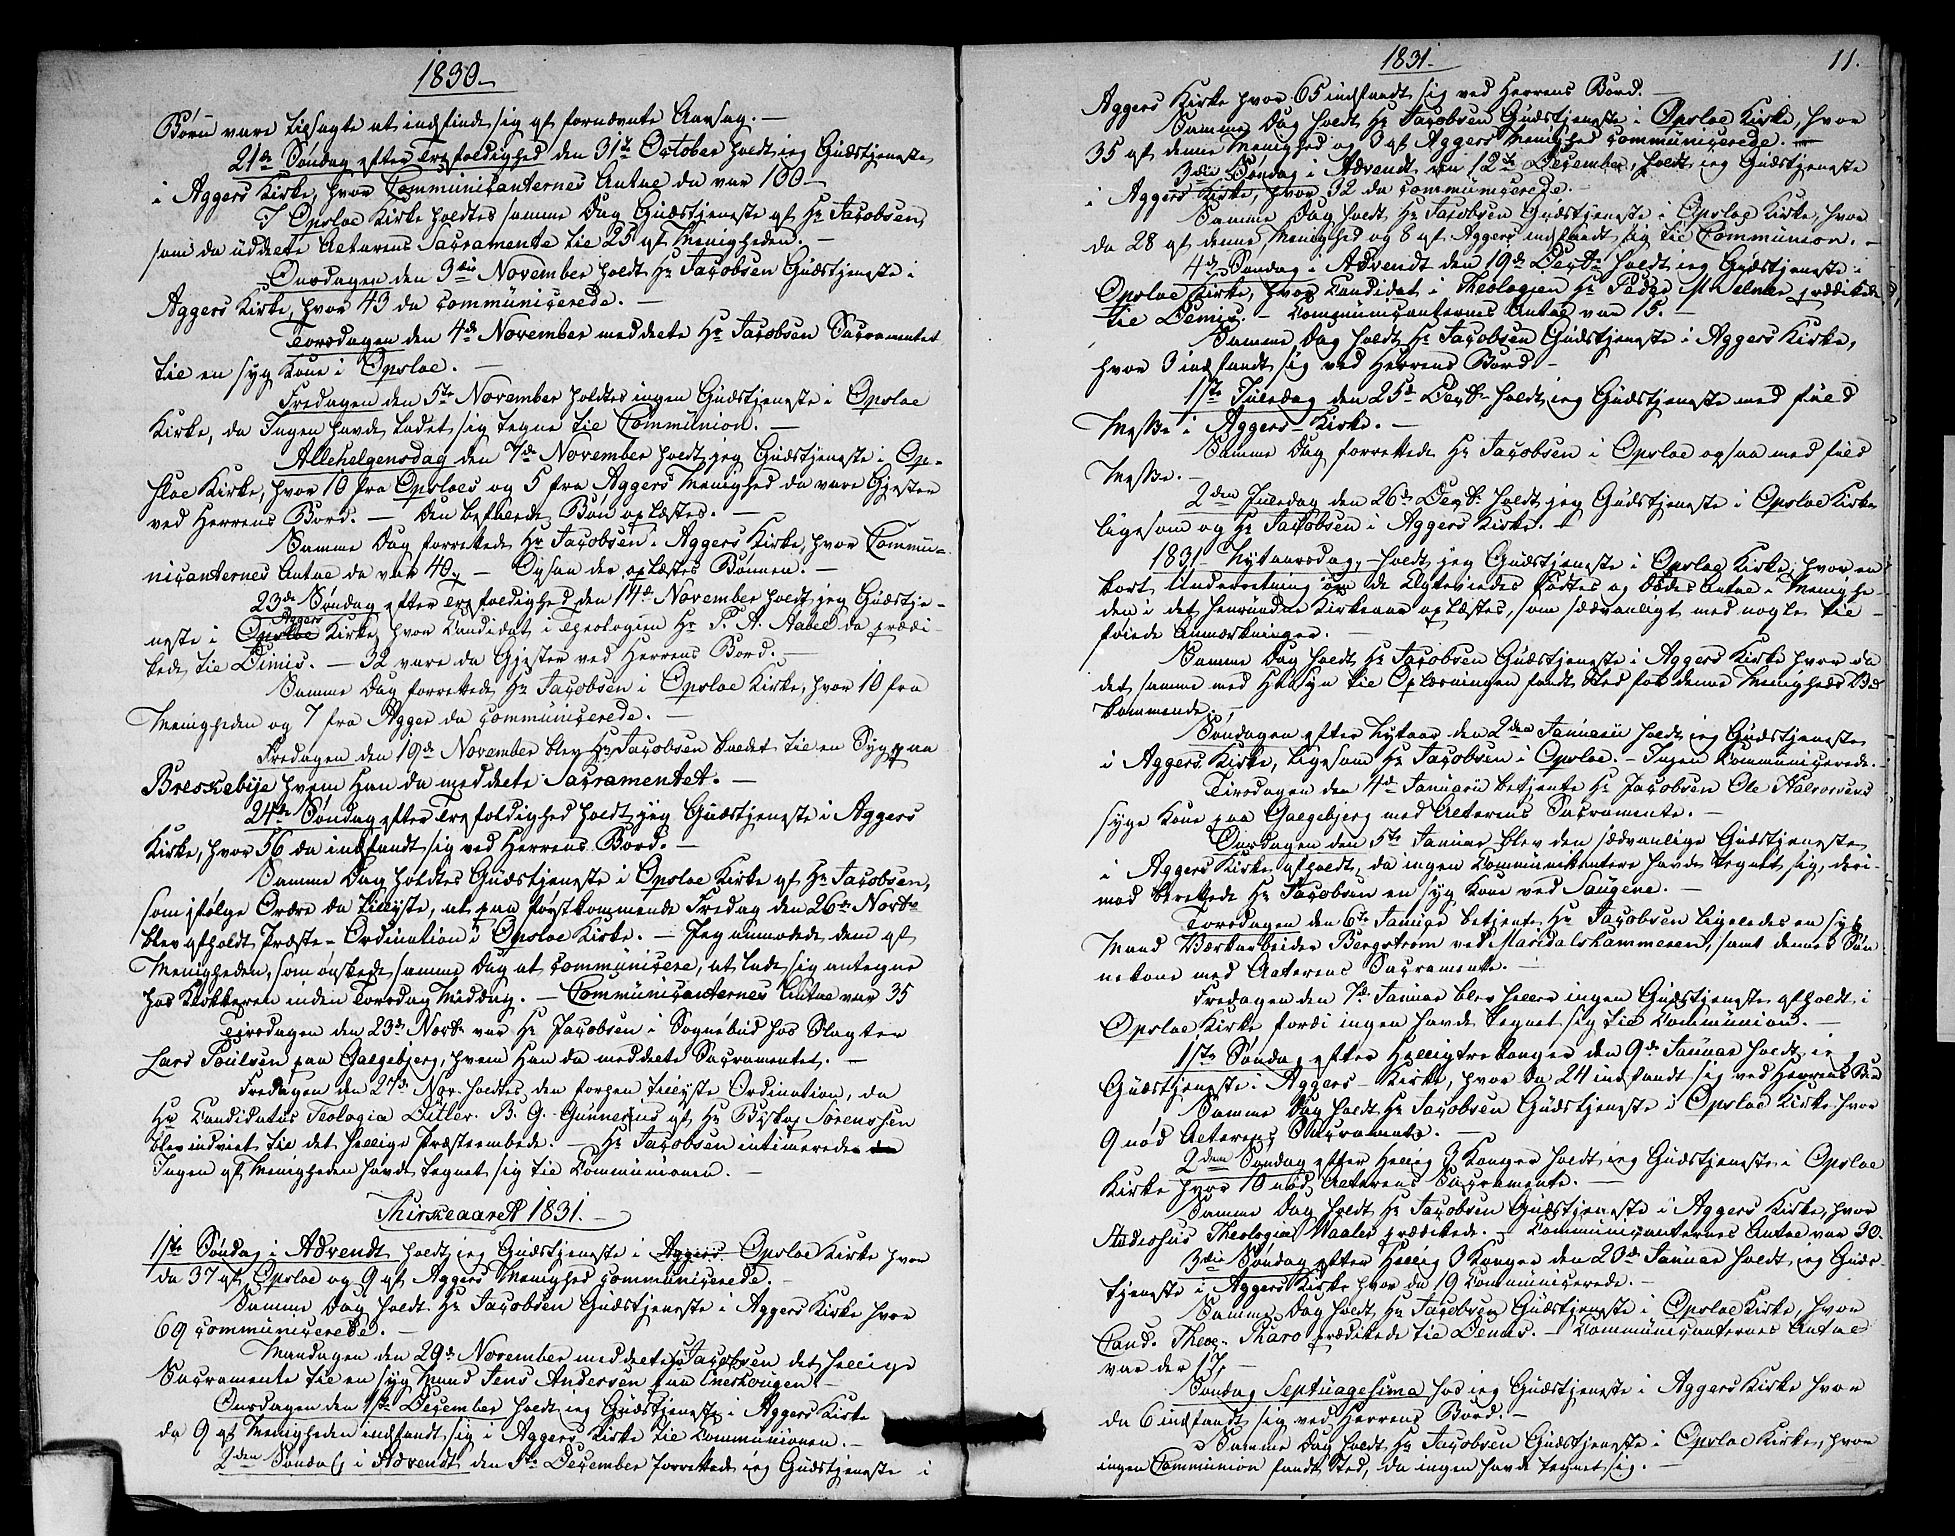 1830.
Børn vare tilsagte at indfinde sig af fornævnte Aarsag. —
21de Søndag efter Trefoldighed den 31te October holdt jeg Gudstjeneste
i Aggers Kirke, hvor Communicanternes Antal da var 100 —
I Opsloe Kirke holdtes samme Dag Gudstjeneste af Hr Jacobsen,
som da uddelte Alterens Sacramente til 25 af Menigheden. —
Onsdagen den 3die November holdt Hr Jacobsen Gudstjeneste i
Aggers Kirke, hvor 43 da communicerede. —
Torsdagen den 4de November meddelte Hr Jacobsen Sacramentet
til en syg Kone i Opsloe. —
Fredagen den 5te November holdtes ingen Gudstjeneste i Opsloe
Kirke, da Ingen havde ladet sig tegne til Communion. —
Allehelgensdag den 7de November holdt jeg Gudstjeneste i Op-
sloe Kirke, hvor 10 fra Opsloes og 5 fra Aggers Menighed da vare Gjester
ved Herrens Bord. — Den befalede Bøn oplæstes. —
Samme Dag forrettede Hr Jacobsen i Aggers Kirke, hvor Commu-
nicanternes Antal da var 40. — Ogsaa der oplæstes Bønnen. —
23de Søndag efter Trefoldighed den 14de November holdt jeg Gudstje-
neste i Opsloe Aggers Kirke, hvor Candidat i Theologien Hr P. A. Aabel da prædi-
kede til Dimis. — 32 vare da Gjester ved Herrens Bord. —
Samme Dag forrettede Hr Jacobsen i Opsloe Kirke, hvor 10 fra
Menigheden og 7 fra Agger da communicerede. —
Fredagen den 19de November blev Hr Jacobsen kaldet til en Syg paa
Breskebye hvem Han da meddelte Sacramentet. —
24de Søndag efter Trefoldighed holdt jeg Gudstjeneste i Aggers
Kirke, hvor 56 da indfandt sig ved Herrens Bord. —
Samme Dag holdtes Gudstjeneste i Opsloe Kirke af Hr Jacobsen,
som ifølge Ordre da tillyste, at paa førstkommende Fredag den 26de Novbr
blev afholdt Præste-Ordination i Opsloe Kirke. — Jeg anmodede dem af
Menigheden, som ønskede samme Dag at communicere, at lade sig antegne
hos Klokkeren inden Torsdag Middag. — Communicanternes Antal var 35
Tirsdagen den 23de Novbr var Hr Jacobsen i Sognebud hos Slagter
Lars Poulsen paa Galgebjerg, hvem Han da meddelte Sacramentet. —
Fredagen den 27de Nov. holdtes den forhen tillyste Ordination, da
Hr Candidatus Teologia Ditlev B. G. Gunnerius af Hr Biskop Sørenssen
blev indviet til det hellige Præsteembede. — Hr Jacobsen intimerede da
Ingen af Menigheden havde tegnet sig til Communionen. —
Kirkeaaret 1831.
1ste Søndag i Advendt holdt jeg Gudstjeneste i Aggers Opsloe Kirke hvor
da 37 af Opsloe og 9 af Aggers Menighed communicerede. —
Samme Dag holdt Hr Jacobsen Gudstjeneste i Aggers Kirke hvor
69 communicerede. —
Mandagen den 29de November meddelte Hr Jacobsen det hellige
Sacramente til en syg Mand Jens Andersen paa Enerhougen. —
Onsdagen den 1ste December holdt jeg Gudstjeneste i Aggers Kirke
da 9 af Menigheden indfandt sig i Aggers Kirke til Communionen. —
2den Søndag i Advendt den 5te December forrettede jeg Gudstjeneste i
1831.
11.
Aggers Kirke hvor 65 indfandt sig ved Herrens Bord. —
Samme Dag holdt Hr Jacobsen Gudstjeneste i Opsloe Kirke, hvor
35 af denne Menighed og 3 af Aggers Menighed communicerede. —
3die Søndag i Advendt den 12te December, holdt jeg Gudstjeneste
i Aggers Kirke, hvor 32 da communicerede. —
Samme Dag holdt Hr Jacobsen Gudstjeneste i Opsloe Kirke, hvor
da 28 af denne Menighed og 8 af Aggers indfandt sig til Communion. —
4de Søndag i Advendt den 19de Decbr holdt jeg Gudstjeneste i
Opsloe Kirke, hvor Candidat i Theologien Hr Peder prædikede
til Demis. — Communicanternes Antal var 15. —
Samme Dag holdt Hr Jacobsen Gudstjeneste i Aggers Kirke,
hvor 3 indfandt sig ved Herrens Bord —
1ste Juledag den 25de Decbr holdt jeg Gudstjeneste med fuld
Messe i Aggers-Kirke. —
Samme Dag forrettede Hr Jacobsen i Opsloe ogsaa med fuld
Messe. —
2den Juledag den 26de Decbr holdt jeg Gudstjeneste i Opsloe Kirke
ligesom og Hr Jacobsen i Aggers Kirke. —
1831. Nytaarsdag, — holdt jeg Gudstjeneste i Opsloe Kirke, hvor en
kort Underretning om de Egteviedes Fødtes og Dødes Antal i Menighe-
den i det henrundne Kirkeaar oplæstes, som sædvanligt med nogle til-
føiede Anmærkninger. —
Samme Dag holdt Hr Jacobsen Gudstjeneste i Aggers Kirke hvor da
det samme med Hensyn til Oplæsningen fandt Sted for denne Menigheds Ved
kommende. —
Søndagen efter Nytaar den 2den Januarii holdt jeg Gudstjeneste
i Aggers Kirke, ligesom Hr Jacobsen i Opsloe. — Ingen Communicerede. —
Tirsdagen den 4de Januarii betjente Hr Jacobsen Ole Halvorsens
syge Kone paa Galgebjerg med Alterens Sacramente. —
Onsdagen den 5te Januar blev den sædvanlige Gudstjeneste
i Aggers Kirke afholdt, da ingen Communikantere havde tegnet sig, deri-
mod berettede Hr Jacobsen en syg Kone ved Saugene. —
Torsdagen den 6te Januar betjente Hr Jacobsen ligeledes en syg
Mand Værkarbeider Bergstrøm ved Maridalshammeren, samt dennes Søn
nekone med Alterens Sacramente. —
Fredagen den 7de Januar blev heller ingen Gudstjeneste afholdt i
Opsloe Kirke fordi ingen havde tegnet sig til Communion. —
1ste Søndag efter Helligtrekonger den 9de Januar holdt jeg
Gudstjeneste i Aggers-Kirke, hvor da 24 indfandt sig ved Herrens Bord
Samme Dag holdt Hr Jacobsen Gudstjeneste i Opsloe Kirke hvor
9 nød Alterens Sacramente. —
2den Søndag efter Hellig 3 Konger holdt jeg Gudstjeneste i Opsloe
Kirke hvor 10 nød Alterens Sacramente. —
Samme Dag holdt Hr Jacobsen Gudstjeneste i Aggers Kirke, hvor
Studiosus Theologia Waaler prædikede. — Communicanternes Antal var 30.
3die Søndag efter Hellig 3 Konger den 23de Januar holdt jeg Guds-
tjeneste i Aggers Kirke hvor da 19 communicerede. —
Samme Dag holdt Hr Jacobsen Gudstjeneste i Opsloe Kirke, hvor
Cand. Theol. prædikede til Demis. — Communicanternes Antal
var der 17, —
Søndag Septuagesima hod jeg Gudstjeneste i Aggers Kirke hvor
da 6 indfandt sig ved Herrens Bord. —
Samme Dag holdt Hr Jacobsen Gudstjeneste i Opsloe Kirke, hvor
ingen Communion fandt Sted, da ingen havde tegnet sig. —